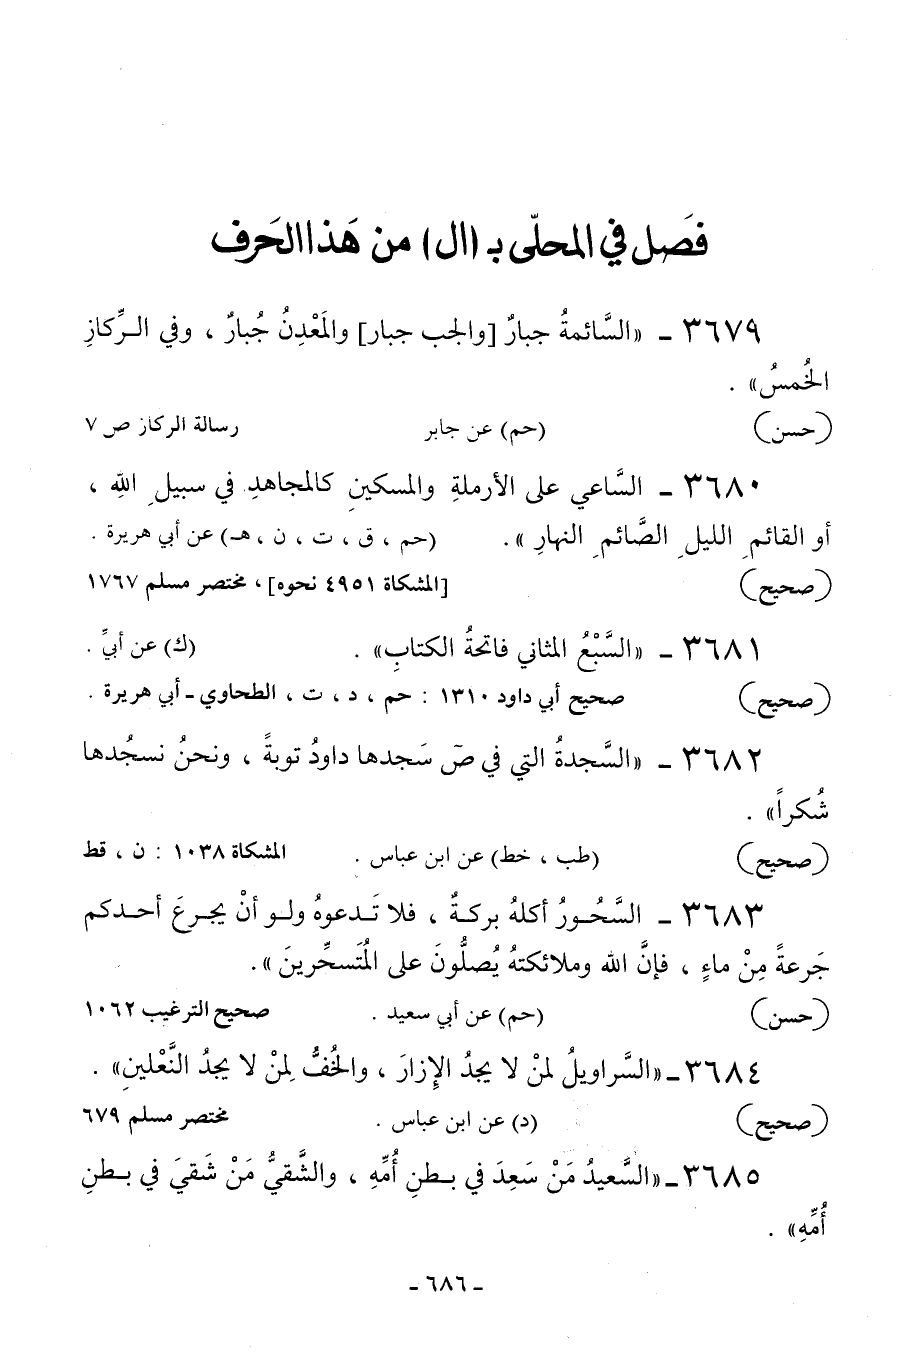 فصل في المحلى بـ (ال) من هذا الحرف
٣٦٧٩ ـ «السَّائمةُ جبارٌ [والجب جبار] والمَعْدِنُ جُبارٌ ، وفي الـرِّكازِ
الخُمسُ» .
(حسن) (حم) عن جابر رسالة الركاز ص ٧
٣٦٨٠ ـ السَّاعي على الأرملةِ والمسكينِ كالمجاهدِ في سبيلِ اللهِ ،
أو القائمِ الليلِ الصَّائمِ النهارِ» . (حم ، ق ، ت ، ن ، هـ) عن أبي هريرة .
(صحيح) [المشكاة ٤٩٥١ نحوه] ، مختصر مسلم ١٧٦٧
٣٦٨١ ـ «السَّبْعُ المثاني فاتحةُ الكتابِ» . (ك) عن أبيِّ .
(صحيح) صحيح أبي داود ١٣١٠ : حم ، د ، ت ، الطحاوي ـ أبي هريرة .
٣٦٨٢ ـ «السَّجدةُ التي في صٓ سَجدها داودُ توبةً ، ونحنُ نسجُدها
شُكراً» .
(صحيح) (طب ، خط) عن ابن عباس . المشكاة ١٠٣٨ : ن ، قط
٣٦٨٣ ـ السَّحُـورُ أكلهُ بركـةٌ ، فلا تَـدعوهُ ولـو أنْ يجـرعَ أحـدكم
جَرعةً مِنْ ماءٍ ، فإنَّ الله وملائكتهُ يُصلُّونَ على المُتَسحِّرينَ» .
(حسن) (حم) عن أبي سعيد . صحيح الترغيب ١٠٦٢
٣٦٨٤ ـ «السَّراويلُ لمنْ لا يجدُ الإزارَ ، والخُفُّ لِمنْ لا يجدُ النَّعْلينِ» .
(صحيح) (د) عن ابن عباس . مختصر مسلم ٦٧٩
٣٦٨٥ ـ «السَّعيدُ مَنْ سَعِدَ في بـطنِ أُمِّهِ ، والشَّقيُّ مَنْ شَقيَ في بـطنِ
أُمِّهِ» .
ـ ٦٨٦ ـ